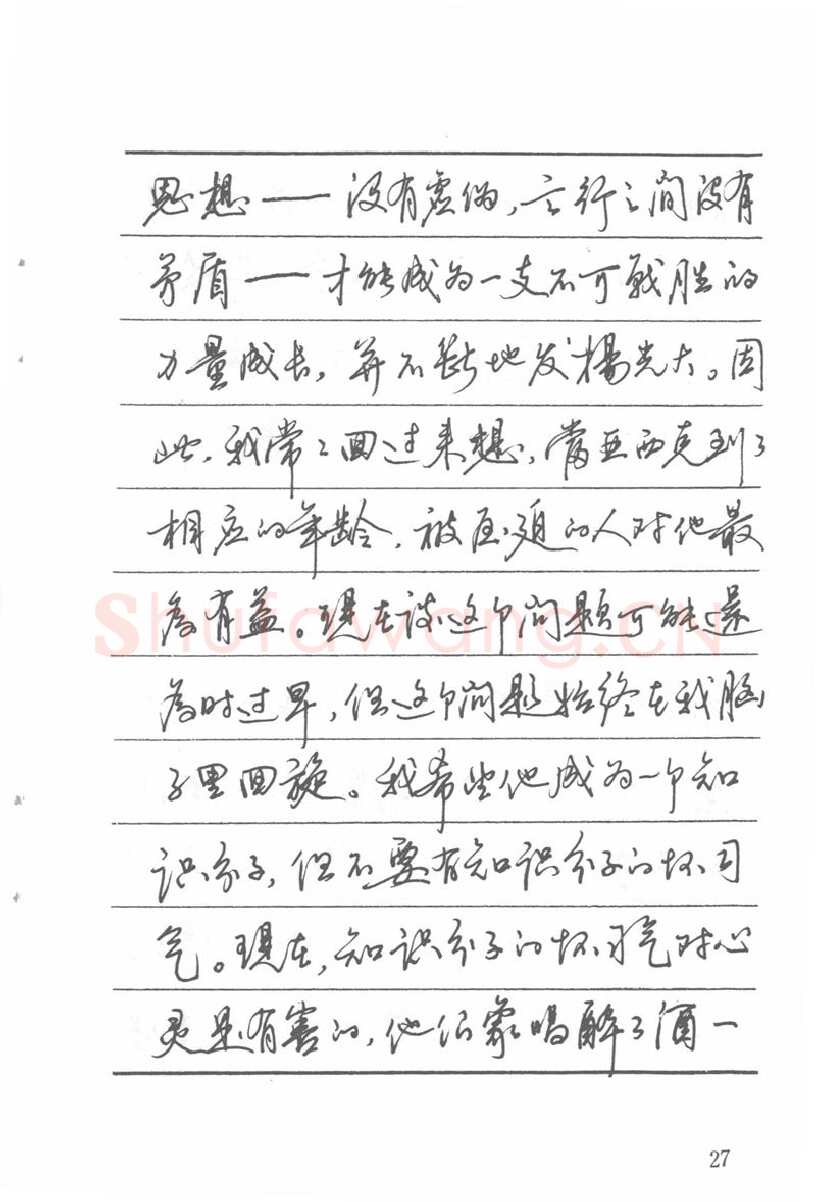 思想——没有虚伪，言行之间没有
矛盾——才能成为一支不可战胜的
力量成长，并不断地发扬光大。因
此，我常常回过来想，当亚西克到了
相应的年龄，被压迫的人对他最
为有益。现在谈这个问题可能还
为时过早，但这个问题始终在我脑
子里回旋。我希望他成为一个知
识分子，但不要有知识分子的坏习
气。现在，知识分子的坏习气对心
灵是有害的，他们象喝醉了酒一
shufawang.CN
27